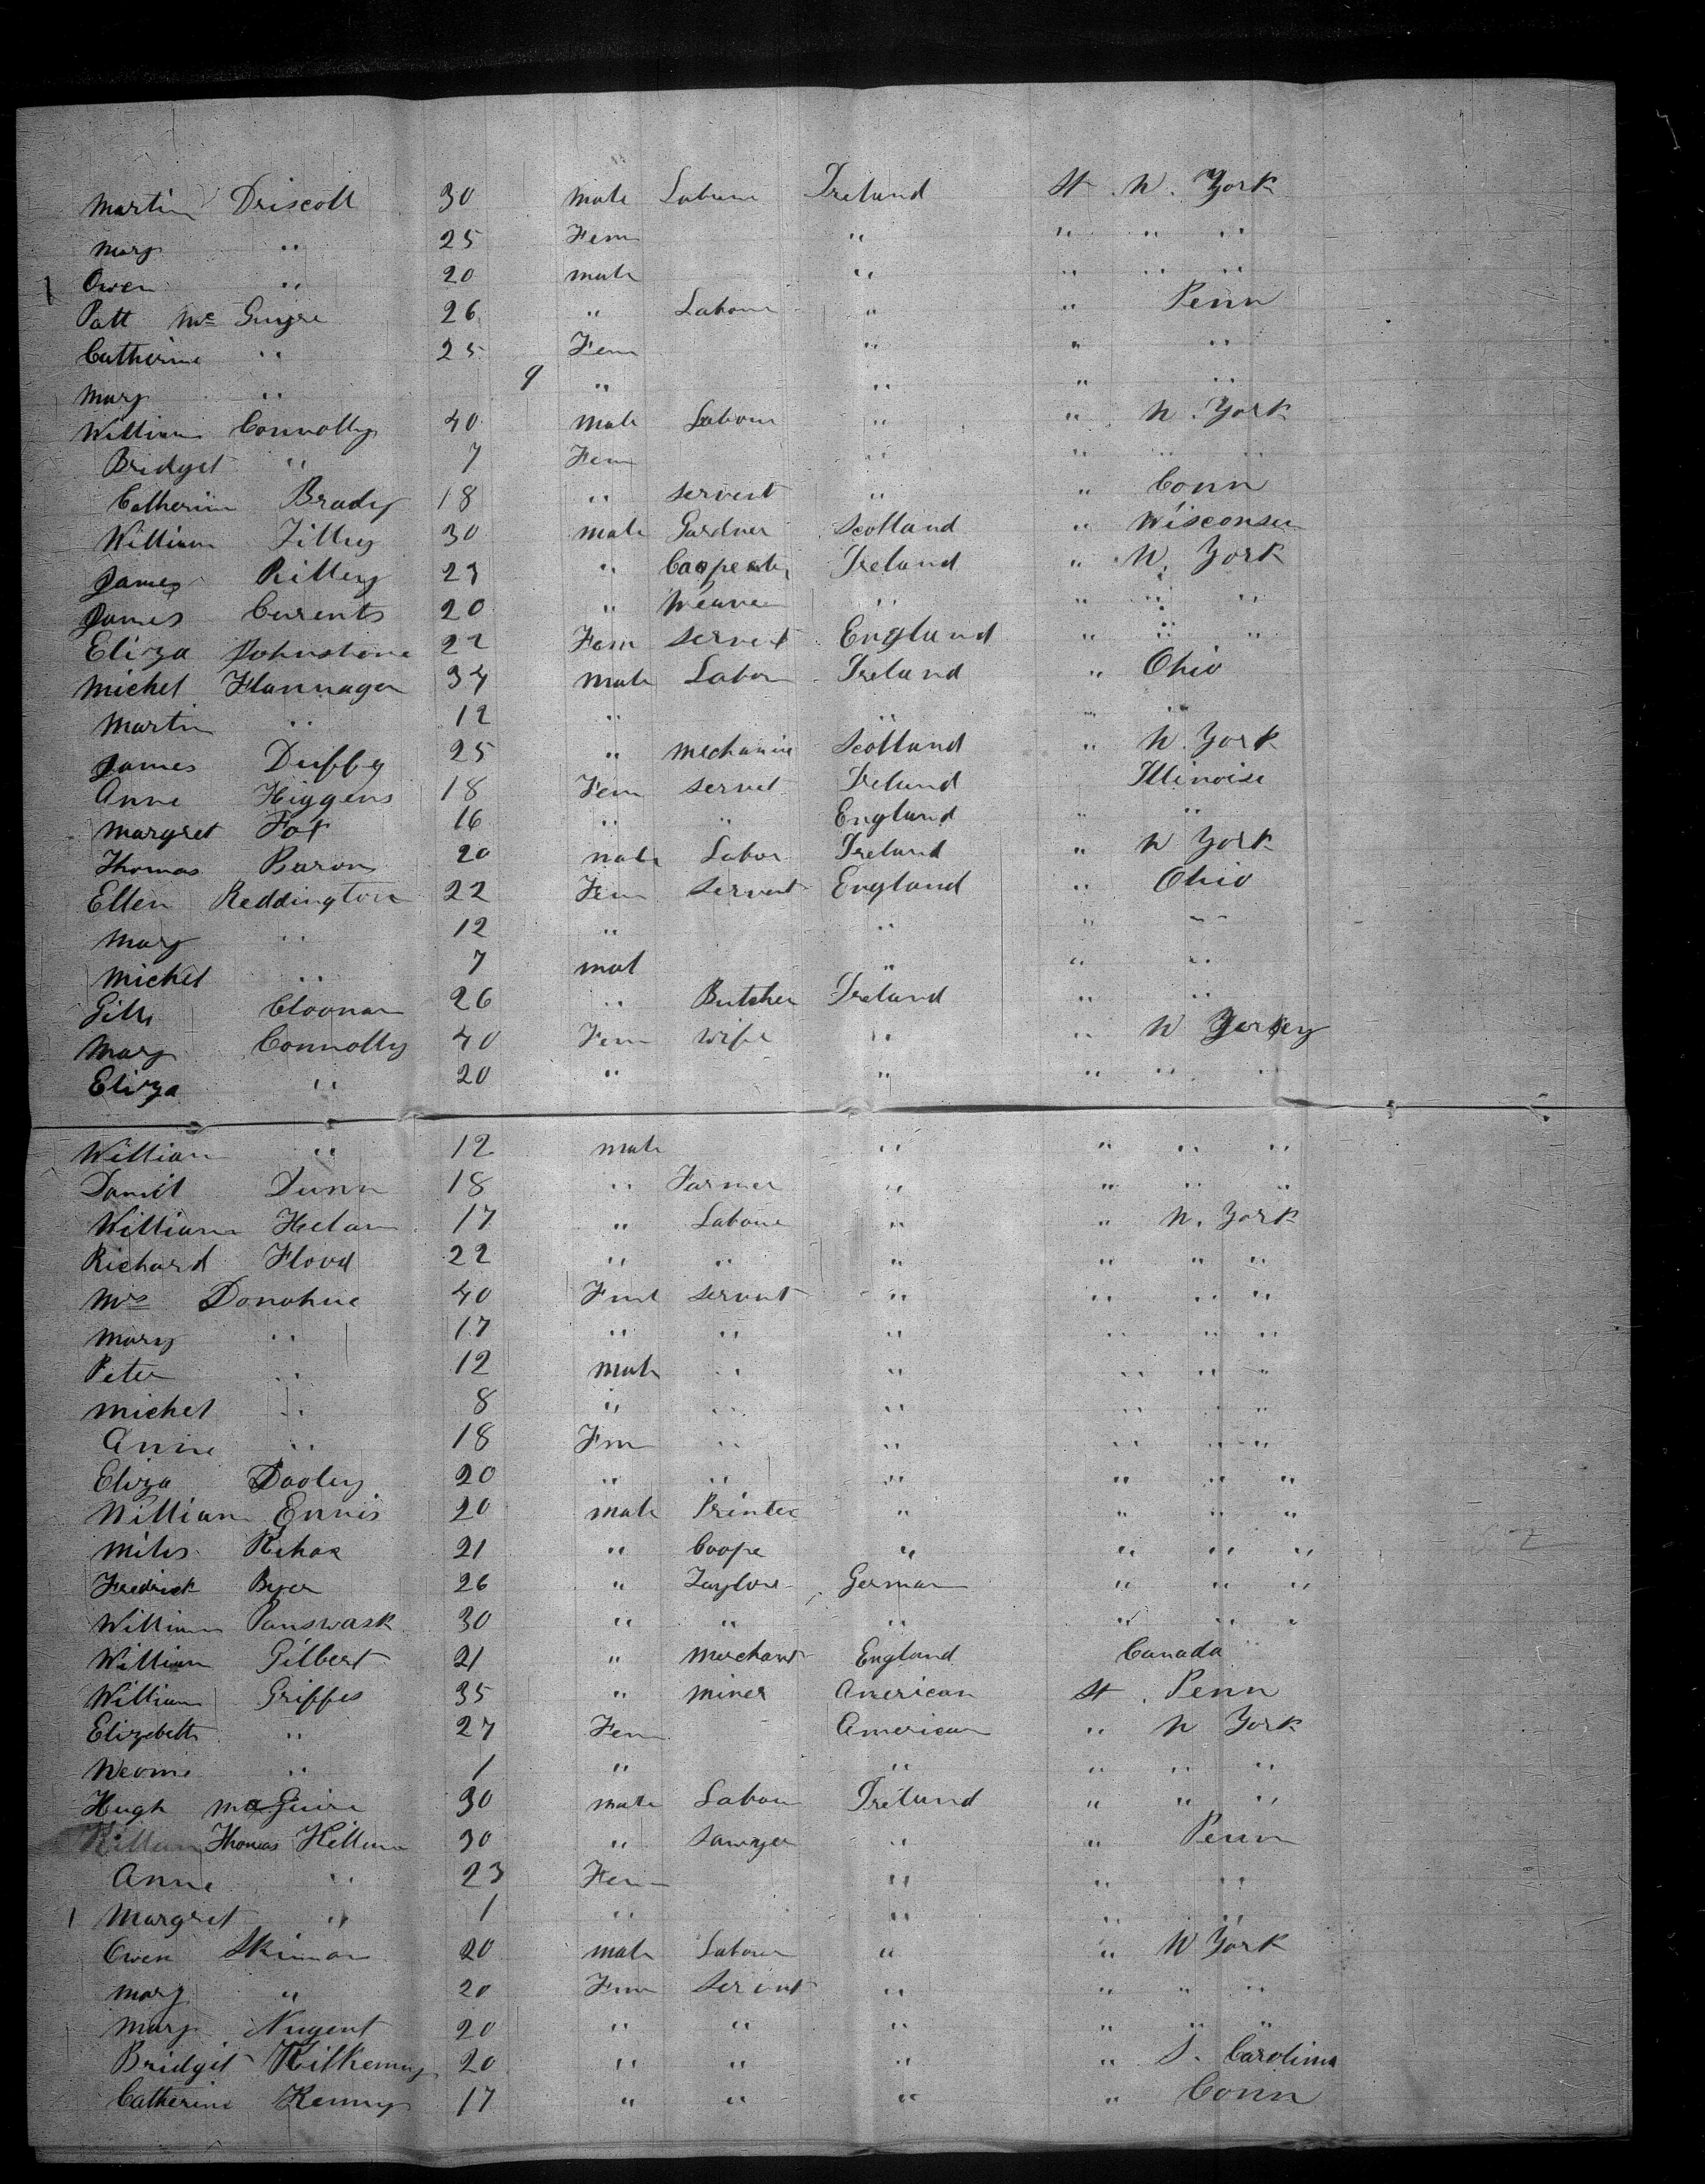 Martin Driscoll 30 male Laboure Ireland St N. York
Mary " 25 Fem " " " "
Owen " 20 male " " " "
Patt Mc Guyre 26 " Laboure " " Penn
Catherine " 25 Fem " " "
Mary " 9 " " " "
William Connolly 40 male Labour " " N. York
Bridget " 7 Fem " " " "
Catherine Brady 18 " servent " " Conn
William Tilley 30 male Gardner Scotland " Wisconsen
James Rilley 23 " Ireland " N. York
James Curents 20 " Weaver " " " "
Eliza Johnstone 22 Fem servent England " " "
Michel Flannagen 34 male Labor Ireland " Ohio
Martin " 12 " " " "
James Duffey 25 " mechanic Scotland " N. York
Anne Higgens 18 Fem servet Ireland Illinoise
Margret Fox 16 " " England " "
Thomas Baron 20 male Labor Ireland " N York
Ellen Reddington 22 Fem servent England " Ohio
Mary " 12 " " " "
Michel " 7 mal " " "
Cloonan 26 " Butcher Ireland " "
Mary Connolly 40 Fem wife " " N Jersey
Eliza " 20 " " " " "
William " 12 male " " " "
Daniel Dunn 18 " Farmer " " " "
William Helan 17 " Laboure " " N. York
Richard Flood 22 " " " " " "
Mrs Donohue 40 Feml servent " " " "
Mary " 17 " " " " " "
Peter " 12 male " " " " "
Michel " 8 " " " " " "
Anne " 18 Fm " " " " "
Eliza Dooley 20 " " " " " "
William Ennis 20 male Printer " " " "
Miles Kehoe 21 " Coope " " " "
Fredrick Byer 26 " Taylore German " " "
William Panswask 30 " " " " " "
William Gilbert 21 " Merchant England Canada
William Griffes 35 " miner American St. Penn
Elizebeth " 27 Fem American " N York
Neome " 1 " " " " "
Hugh McGuire 30 male Labour Ireland " " "
Killum Thomas Killum 30 " Sawyer " " Penn
Anne " 23 Fem " " "
Margret " 1 " " " "
Owen Skinnan 20 male Laboure " " N York
Mary " 20 Fem Servent " " " "
Mary Nugent 20 " " " " " "
Bridgit Kilkenny 20 " " " " S. Carolina
Catherine Kenny 17 " " " " Conn